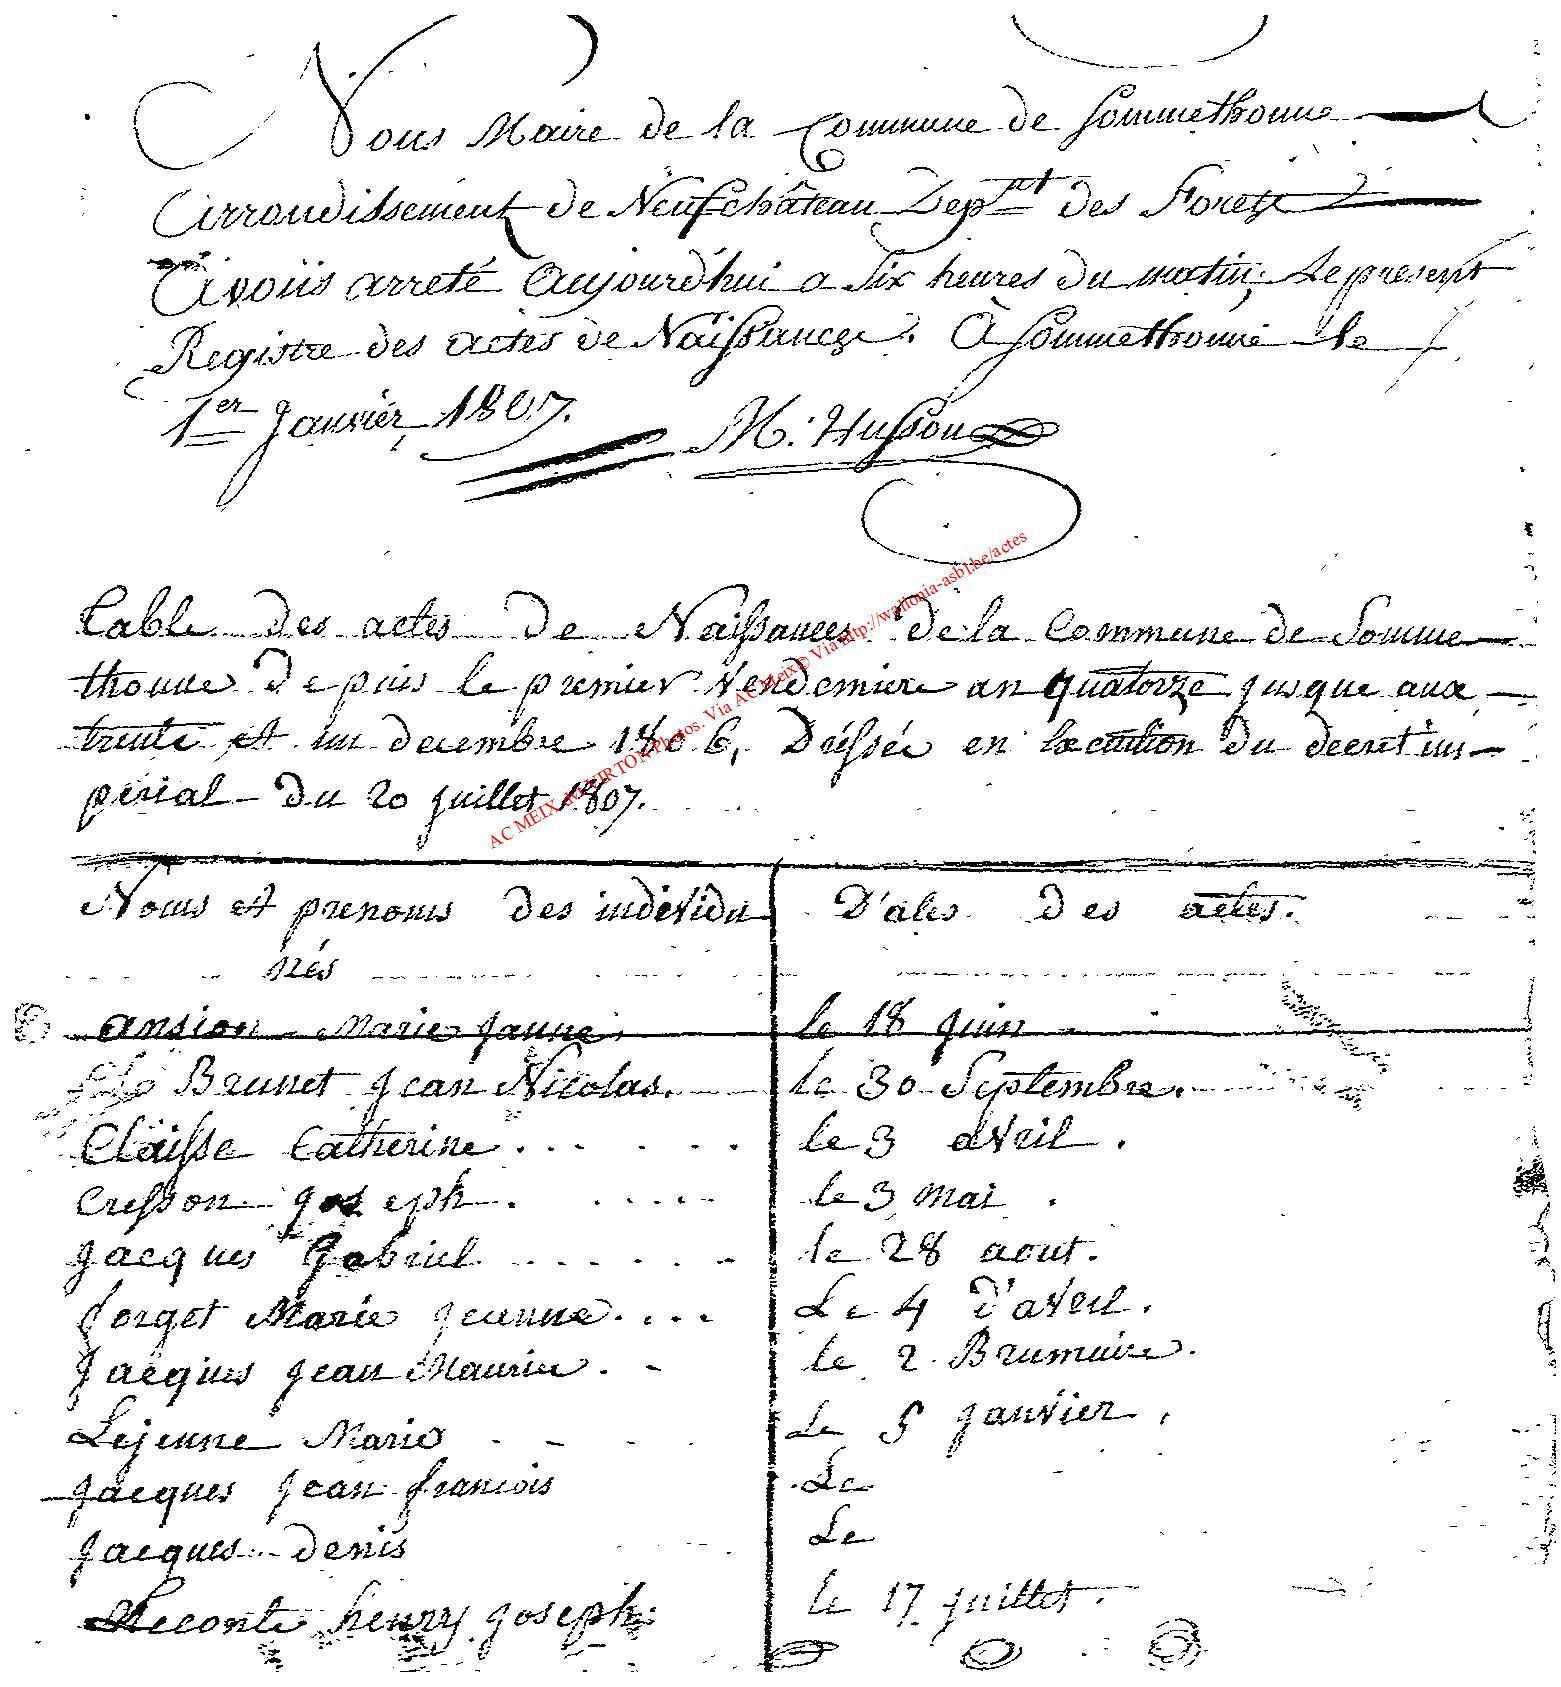 Nous Maire de la Commune de Sommethonne
Arrondissement de Neufchâteau Depmt des Forets
Avoüs arreté aujourd'hui a Six heures du matin, Le present
Registre des actes de Naissances. À Sommethonne le
1er Janvier 1807. M. Husson
Table des actes de Naissances de la Commune de Somme
thonne depuis le premier Vendemiere an quatorze jusque aux
trente et un decembre 1806, Dréssée en Execution du decret im
perial du 20 juillet 1807.
Noms et prenoms des individu D'ates des actes.
nés
ansion Marie Jeanne. le 18 juin
Brunet Jean Nicolas. le 30 Septembre.
Claisse Catherine le 3 avril.
Cresson Joseph. le 3 mai.
Jacques Gabriel le 28 aout.
forget Marie Jeanne le 4 d'avril.
Jacques Jean Maurice. le 2 Brumaire.
Lejeune Marie Le 5 Janvier.
Jacques Jean francois Le
Jacques denis Le
Leconte henry Joseph le 17 juillet.
AC MEIX-dt-VIRTON Photos. Via AC Meix© Via http://wallonia-asbl.be/actes